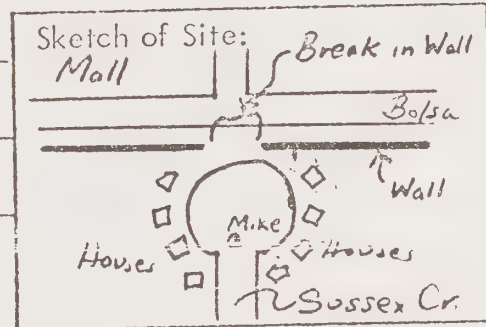 Sketch of Site:
Break in Wall
Mall
Bolsa
Wall
Mike
Houses
Houses
Sussex Cr.